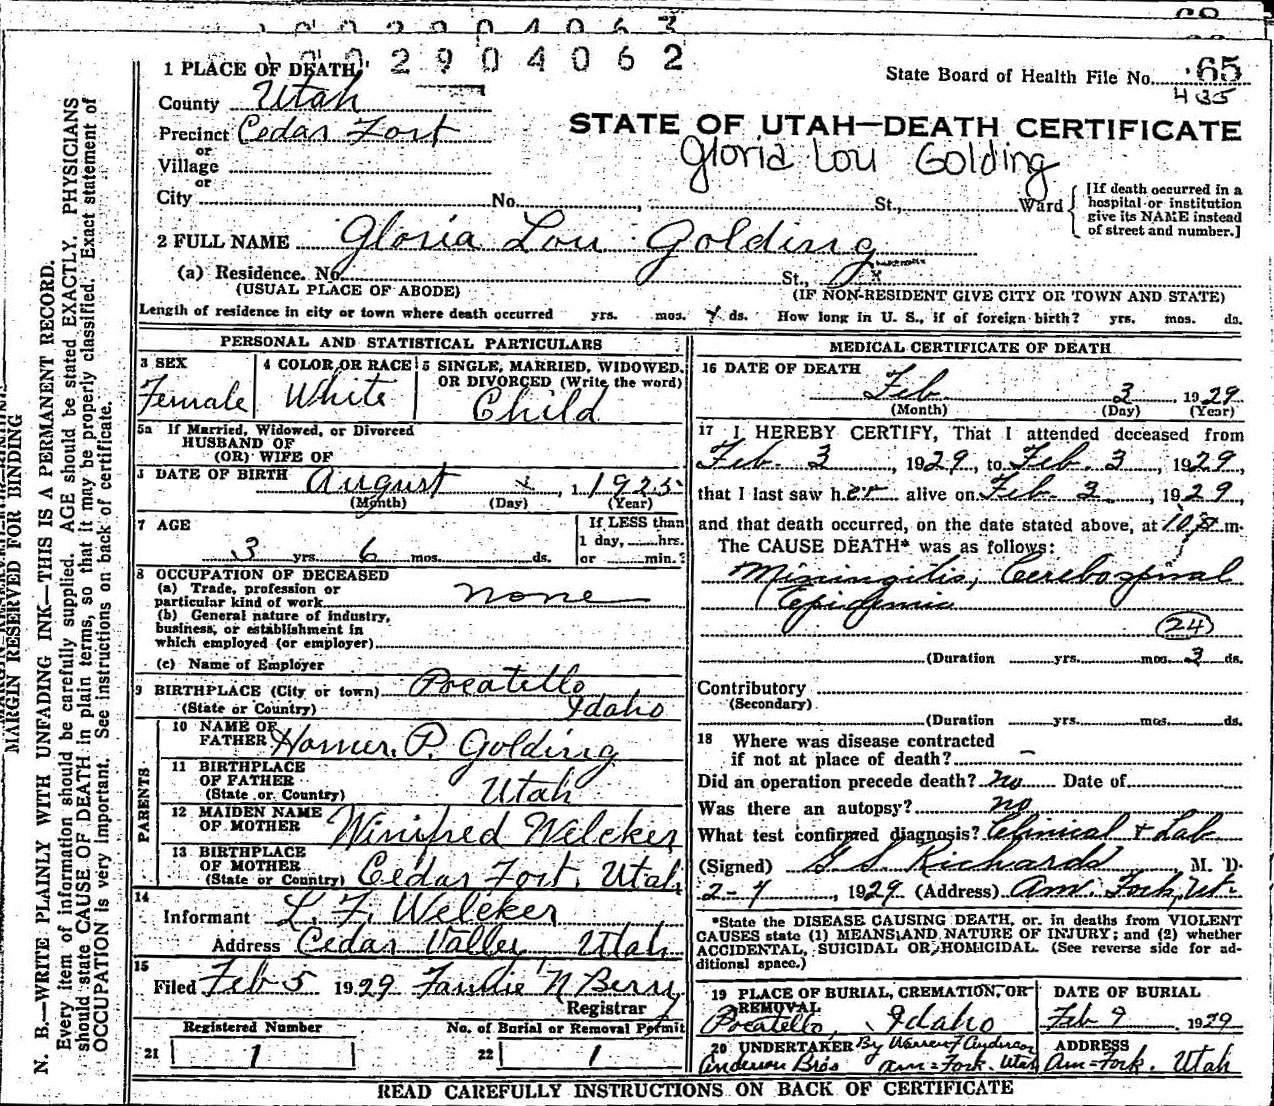 1 0 0 2 9 0 4 0 6 2
1 PLACE OF DEATH
State Board of Health File No. 65
435
County Utah
Precinct Cedar Fort
or
Village
or
STATE OF UTAH—DEATH CERTIFICATE
Gloria Lou Golding
City No. , St., Ward
[If death occurred in a
hospital or institution
give its NAME instead
of street and number.]
2 FULL NAME Gloria Lou Golding
(a) Residence. No. St., x
(USUAL PLACE OF ABODE) (IF NON-RESIDENT GIVE CITY OR TOWN AND STATE)
Length of residence in city or town where death occurred yrs. mos. ds. How long in U. S., if of foreign birth? yrs. mos. ds.
PERSONAL AND STATISTICAL PARTICULARS
3 SEX
Female
4 COLOR OR RACE
White
5 SINGLE, MARRIED, WIDOWED,
OR DIVORCED (Write the word)
Child
5a If Married, Widowed, or Divorced
HUSBAND OF
(OR) WIFE OF
DATE OF BIRTH August x , 1 1925
(Month) (Day) (Year)
7 AGE
3 yrs. 6 mos. ds.
If LESS than
1 day, hrs.
or min.?
8 OCCUPATION OF DECEASED
(a) Trade, profession or
particular kind of work none
(b) General nature of industry,
business, or establishment in
which employed (or employer)
(c) Name of Employer
9 BIRTHPLACE (City or town) Pocatello
(State or Country) Idaho
PARENTS
10 NAME OF
FATHER Homer P. Golding
11 BIRTHPLACE
OF FATHER
(State or Country) Utah
12 MAIDEN NAME
OF MOTHER Winifred Welcker
13 BIRTHPLACE
OF MOTHER
(State or Country) Cedar Fort, Utah
14
Informant L. F. Welcker
Address Cedar Valley Utah
15
Filed Feb 5 1929 N Berry
Registrar
Registered Number No. of Burial or Removal Permit
21 1 22 1
MEDICAL CERTIFICATE OF DEATH
16 DATE OF DEATH
Feb 3, 1929
(Month) (Day) (Year)
17 I HEREBY CERTIFY, That I attended deceased from
Feb. 3, 1929, to Feb. 3, 1929,
that I last saw her alive on Feb. 3, 1929,
and that death occurred, on the date stated above, at 10 m.
The CAUSE DEATH* was as follows:
Miningitis, Cerebospinal
Epidemic
24
(Duration yrs. mos. 3 ds.
Contributory
(Secondary)
(Duration yrs. mos. ds.
18 Where was disease contracted
if not at place of death? –
Did an operation precede death? no Date of
Was there an autopsy? no
What test confirmed diagnosis? Clinical & Lab
(Signed) G S Richards M. D.
2-4, 1929 (Address) Am. Fork, Ut.
*State the DISEASE CAUSING DEATH, or in deaths from VIOLENT
CAUSES state (1) MEANS AND NATURE OF INJURY; and (2) whether
ACCIDENTAL, SUICIDAL OR HOMICIDAL. (See reverse side for ad-
ditional space.)
19 PLACE OF BURIAL, CREMATION, OR
REMOVAL
Pocatello, Idaho
DATE OF BURIAL
Feb 9 1929
20 UNDERTAKER By Warren F Anderson
Anderson Bros Am=Fork. Utah
ADDRESS
Am=Fork. Utah
READ CAREFULLY INSTRUCTIONS ON BACK OF CERTIFICATE
MARGIN RESERVED FOR BINDING
N. B.—WRITE PLAINLY WITH UNFADING INK—THIS IS A PERMANENT RECORD.
Every item of information should be carefully supplied. AGE should be stated EXACTLY. PHYSICIANS
should state CAUSE OF DEATH in plain terms, so that it may be properly classified. Exact statement of
OCCUPATION is very important. See instructions on back of certificate.